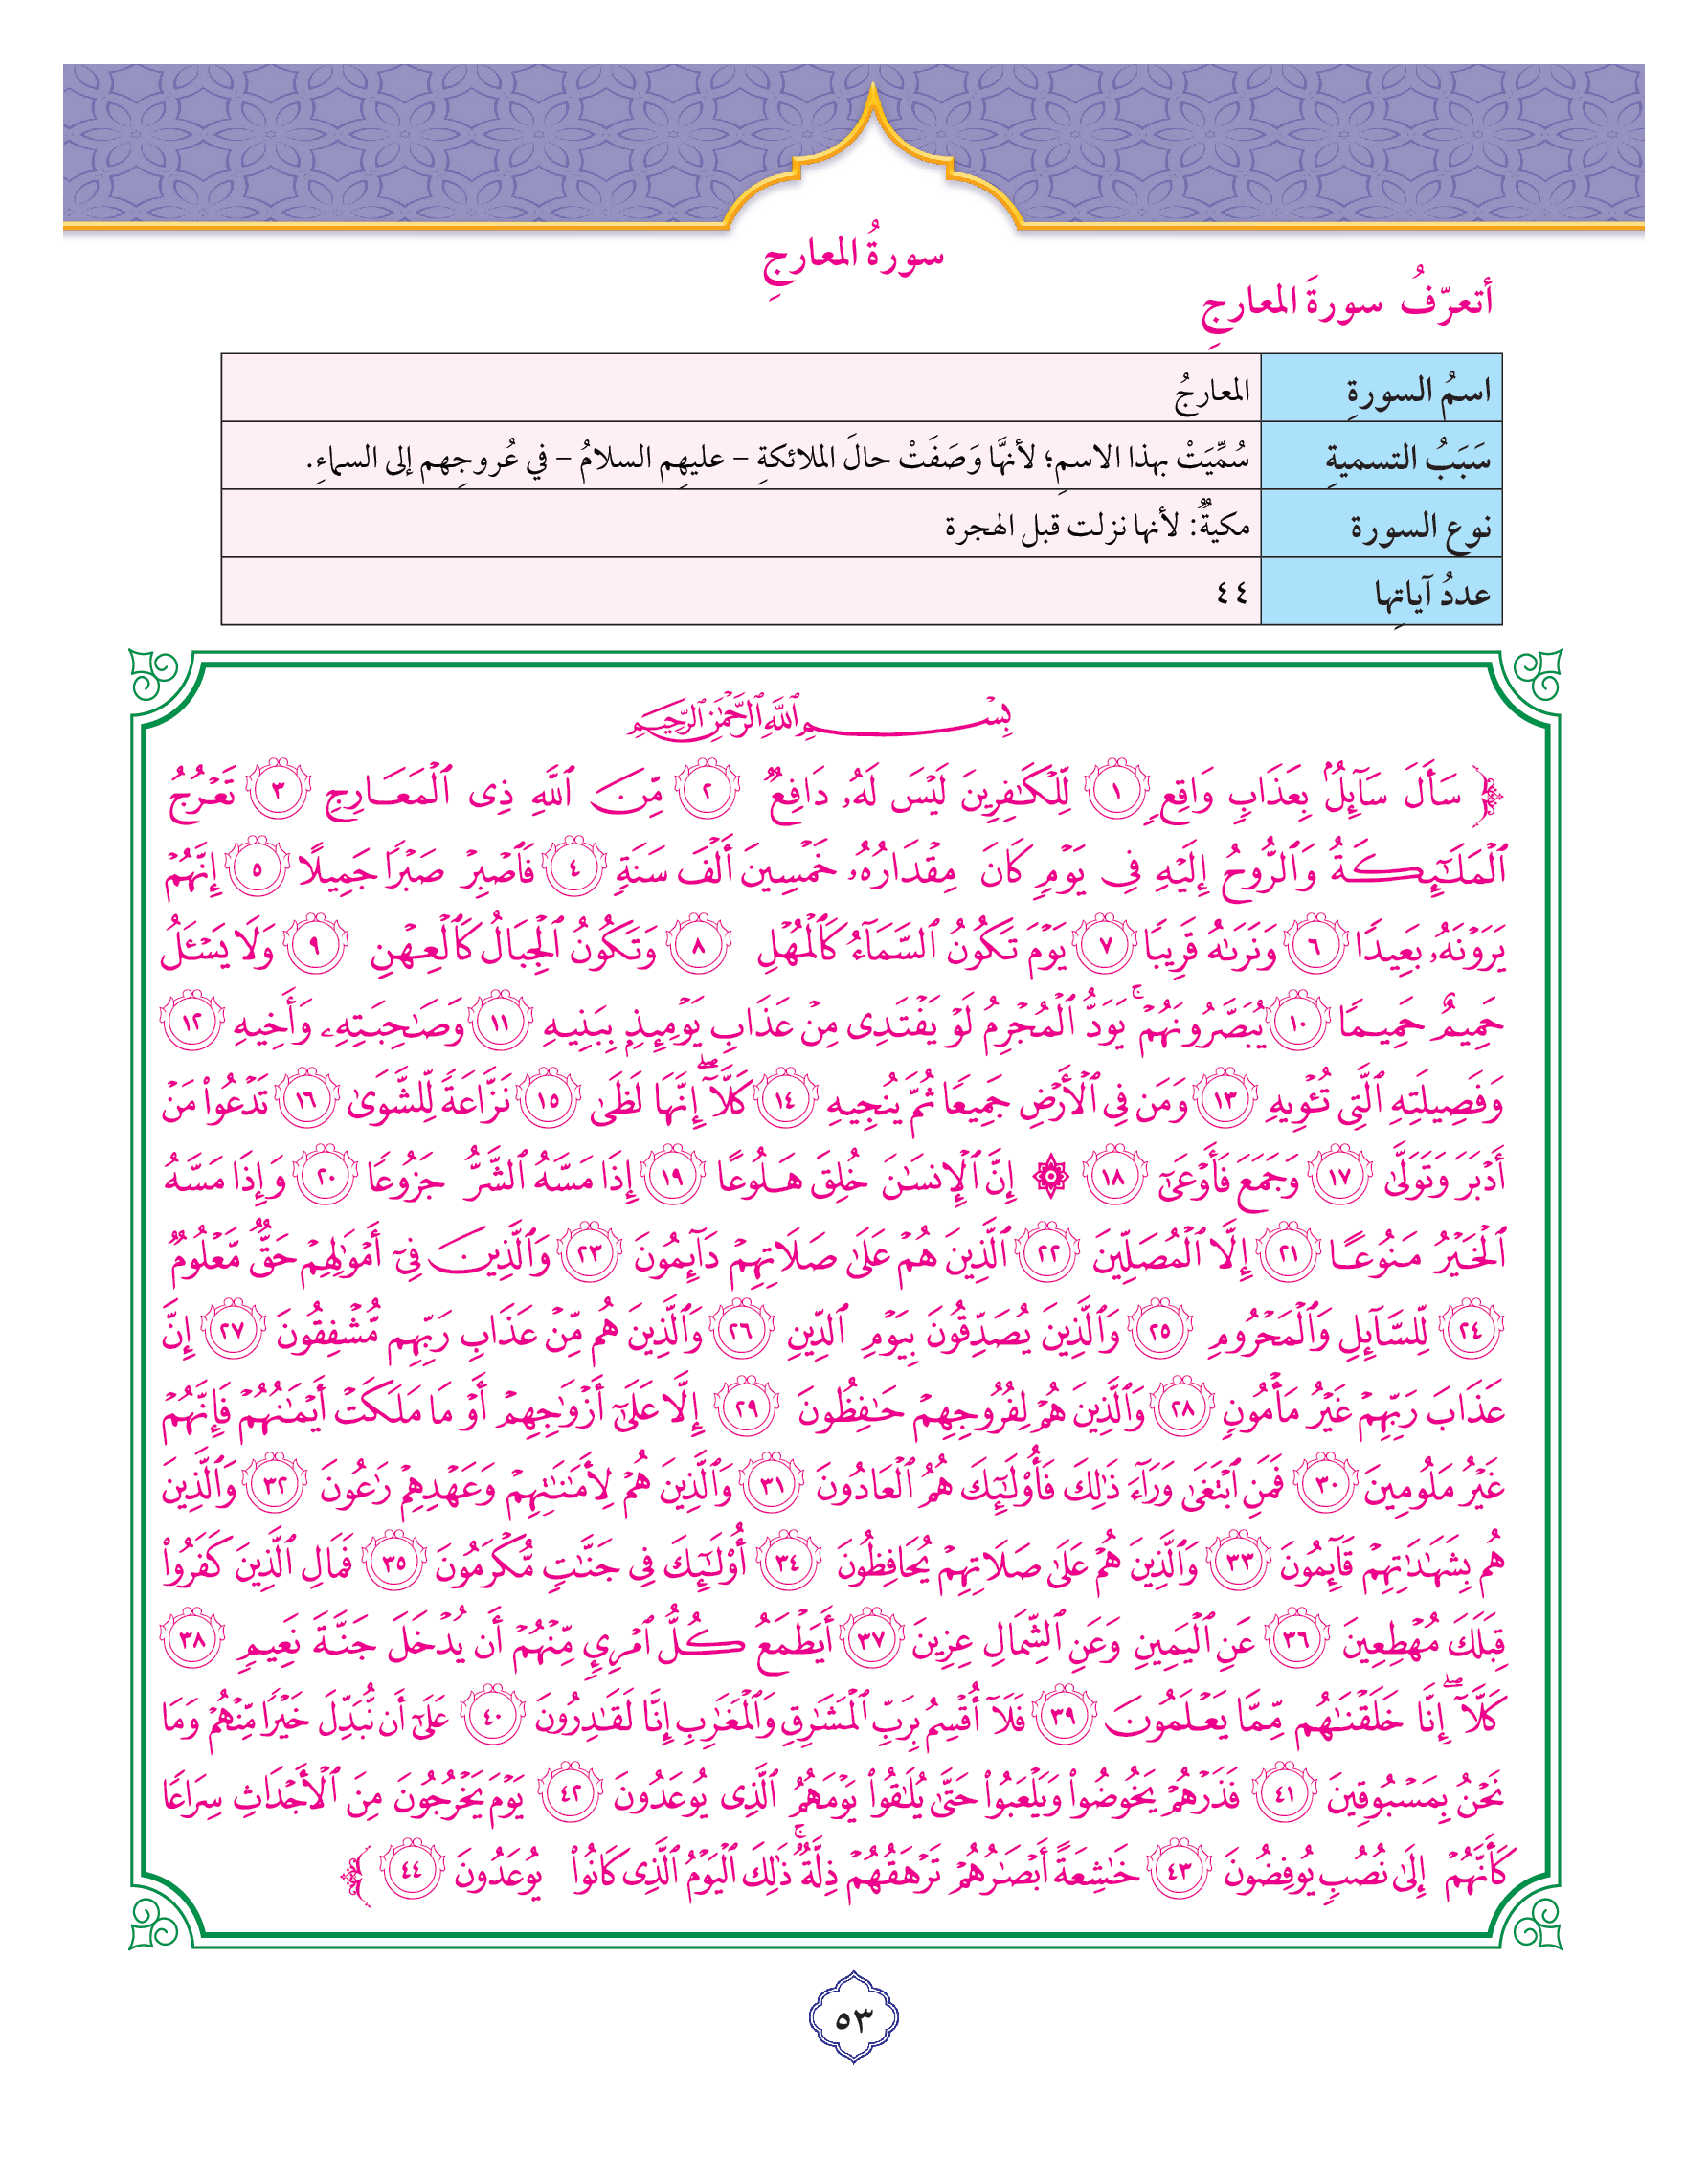 سورةُ المعارجِ
أتعرّفُ سورةَ المعارجِ
اسمُ السورةِ المعارجُ
سَبَبُ التسميةِ سُمِّيَتْ بهذا الاسمِ؛ لأنهَّا وَصَفَتْ حالَ الملائكةِ – عليهِم السلامُ – في عُروجِهم إلى السماءِ.
نوع السورة مكيةٌ: لأنها نزلت قبل الهجرة
عددُ آياتِها ٤٤
بِسْمِ ٱللَّهِ ٱلرَّحْمَٰنِ ٱلرَّحِيمِ
﴿ سَأَلَ سَآئِلُۢ بِعَذَابٖ وَاقِعٖ ١ لِّلۡكَٰفِرِينَ لَيۡسَ لَهُۥ دَافِعٞ ٢ مِّنَ ٱللَّهِ ذِى ٱلۡمَعَارِجِ ٣ تَعۡرُجُ
ٱلۡمَلَٰٓئِكَةُ وَٱلرُّوحُ إِلَيۡهِ فِى يَوۡمٖ كَانَ مِقۡدَارُهُۥ خَمۡسِينَ أَلۡفَ سَنَةٖ ٤ فَٱصۡبِرۡ صَبۡرٗا جَمِيلًا ٥ إِنَّهُمۡ
يَرَوۡنَهُۥ بَعِيدٗا ٦ وَنَرَىٰهُ قَرِيبٗا ٧ يَوۡمَ تَكُونُ ٱلسَّمَآءُ كَٱلۡمُهۡلِ ٨ وَتَكُونُ ٱلۡجِبَالُ كَٱلۡعِهۡنِ ٩ وَلَا يَسۡـَٔلُ
حَمِيمٌ حَمِيمٗا ١٠ يُبَصَّرُونَهُمۡۚ يَوَدُّ ٱلۡمُجۡرِمُ لَوۡ يَفۡتَدِى مِنۡ عَذَابِ يَوۡمِئِذِۭ بِبَنِيهِ ١١ وَصَٰحِبَتِهِۦ وَأَخِيهِ ١٢
وَفَصِيلَتِهِ ٱلَّتِى تُـۡٔوِيهِ ١٣ وَمَن فِى ٱلۡأَرۡضِ جَمِيعٗا ثُمَّ يُنجِيهِ ١٤ كَلَّآۖ إِنَّهَا لَظَىٰ ١٥ نَزَّاعَةٗ لِّلشَّوَىٰ ١٦ تَدۡعُواْ مَنۡ
أَدۡبَرَ وَتَوَلَّىٰ ١٧ وَجَمَعَ فَأَوۡعَىٰٓ ١٨ ۞ إِنَّ ٱلۡإِنسَٰنَ خُلِقَ هَلُوعًا ١٩ إِذَا مَسَّهُ ٱلشَّرُّ جَزُوعٗا ٢٠ وَإِذَا مَسَّهُ
ٱلۡخَيۡرُ مَنُوعًا ٢١ إِلَّا ٱلۡمُصَلِّينَ ٢٢ ٱلَّذِينَ هُمۡ عَلَىٰ صَلَاتِهِمۡ دَآئِمُونَ ٢٣ وَٱلَّذِينَ فِىٓ أَمۡوَٰلِهِمۡ حَقّٞ مَّعۡلُومٞ
٢٤ لِّلسَّآئِلِ وَٱلۡمَحۡرُومِ ٢٥ وَٱلَّذِينَ يُصَدِّقُونَ بِيَوۡمِ ٱلدِّينِ ٢٦ وَٱلَّذِينَ هُم مِّنۡ عَذَابِ رَبِّهِم مُّشۡفِقُونَ ٢٧ إِنَّ
عَذَابَ رَبِّهِمۡ غَيۡرُ مَأۡمُونٖ ٢٨ وَٱلَّذِينَ هُمۡ لِفُرُوجِهِمۡ حَٰفِظُونَ ٢٩ إِلَّا عَلَىٰٓ أَزۡوَٰجِهِمۡ أَوۡ مَا مَلَكَتۡ أَيۡمَٰنُهُمۡ فَإِنَّهُمۡ
غَيۡرُ مَلُومِينَ ٣٠ فَمَنِ ٱبۡتَغَىٰ وَرَآءَ ذَٰلِكَ فَأُوْلَٰٓئِكَ هُمُ ٱلۡعَادُونَ ٣١ وَٱلَّذِينَ هُمۡ لِأَمَٰنَٰتِهِمۡ وَعَهۡدِهِمۡ رَٰعُونَ ٣٢ وَٱلَّذِينَ
هُم بِشَهَٰدَٰتِهِمۡ قَآئِمُونَ ٣٣ وَٱلَّذِينَ هُمۡ عَلَىٰ صَلَاتِهِمۡ يُحَافِظُونَ ٣٤ أُوْلَٰٓئِكَ فِى جَنَّٰتٖ مُّكۡرَمُونَ ٣٥ فَمَالِ ٱلَّذِينَ كَفَرُواْ
قِبَلَكَ مُهۡطِعِينَ ٣٦ عَنِ ٱلۡيَمِينِ وَعَنِ ٱلشِّمَالِ عِزِينَ ٣٧ أَيَطۡمَعُ كُلُّ ٱمۡرِيٕٖ مِّنۡهُمۡ أَن يُدۡخَلَ جَنَّةَ نَعِيمٖ ٣٨
كَلَّآۖ إِنَّا خَلَقۡنَٰهُم مِّمَّا يَعۡلَمُونَ ٣٩ فَلَآ أُقۡسِمُ بِرَبِّ ٱلۡمَشَٰرِقِ وَٱلۡمَغَٰرِبِ إِنَّا لَقَٰدِرُونَ ٤٠ عَلَىٰٓ أَن نُّبَدِّلَ خَيۡرٗا مِّنۡهُمۡ وَمَا
نَحۡنُ بِمَسۡبُوقِينَ ٤١ فَذَرۡهُمۡ يَخُوضُواْ وَيَلۡعَبُواْ حَتَّىٰ يُلَٰقُواْ يَوۡمَهُمُ ٱلَّذِى يُوعَدُونَ ٤٢ يَوۡمَ يَخۡرُجُونَ مِنَ ٱلۡأَجۡدَاثِ سِرَاعٗا
كَأَنَّهُمۡ إِلَىٰ نُصُبٖ يُوفِضُونَ ٤٣ خَٰشِعَةً أَبۡصَٰرُهُمۡ تَرۡهَقُهُمۡ ذِلَّةٞۚ ذَٰلِكَ ٱلۡيَوۡمُ ٱلَّذِى كَانُواْ يُوعَدُونَ ٤٤ ﴾
٥٣